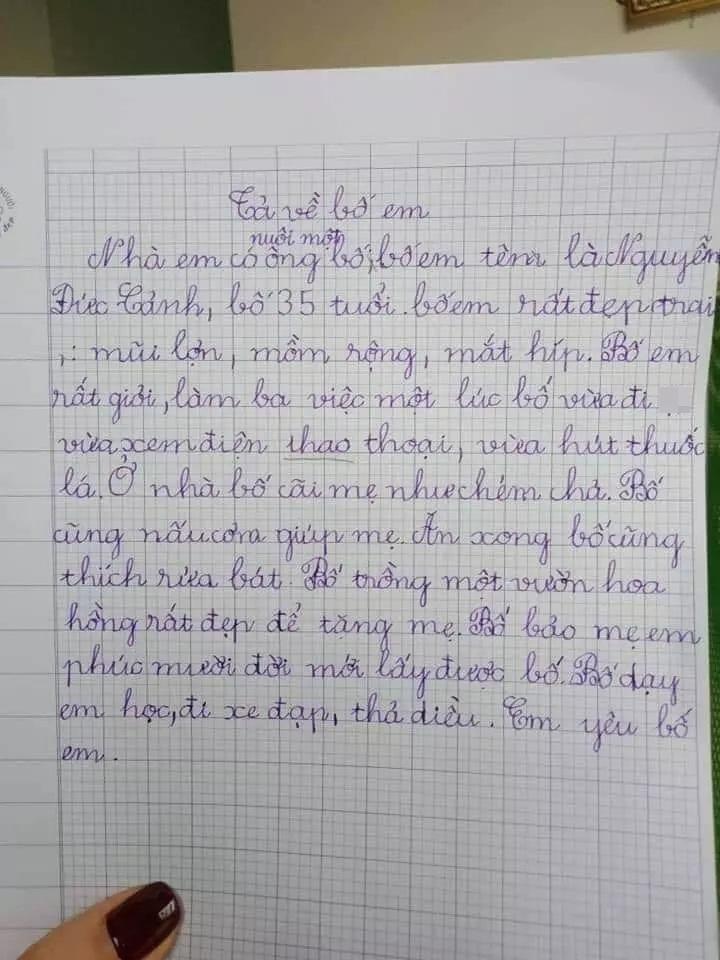 Tả về bố em
nuôi một
Nhà em có ông bố, bố em tên là Nguyễn
Đức Cảnh, bố 35 tuổi. bố em rất đẹp trai
,: mũi lợn, mồm rộng, mắt híp. Bố em
rất giỏi, làm ba việc một lúc bố vừa đi
vừa xem điện thao thoại, vừa hút thuốc
lá. Ở nhà bố cãi mẹ như chém chả. Bố
cũng nấu cơm giúp mẹ. Ăn xong bố cũng
thích rửa bát. Bố trồng một vườn hoa
hồng rất đẹp để tăng mẹ. Bố bảo mẹ em
phúc mười đời mới lấy được bố. Bố dạy
em học, đi xe đạp, thả diều. Em yêu bố
em.